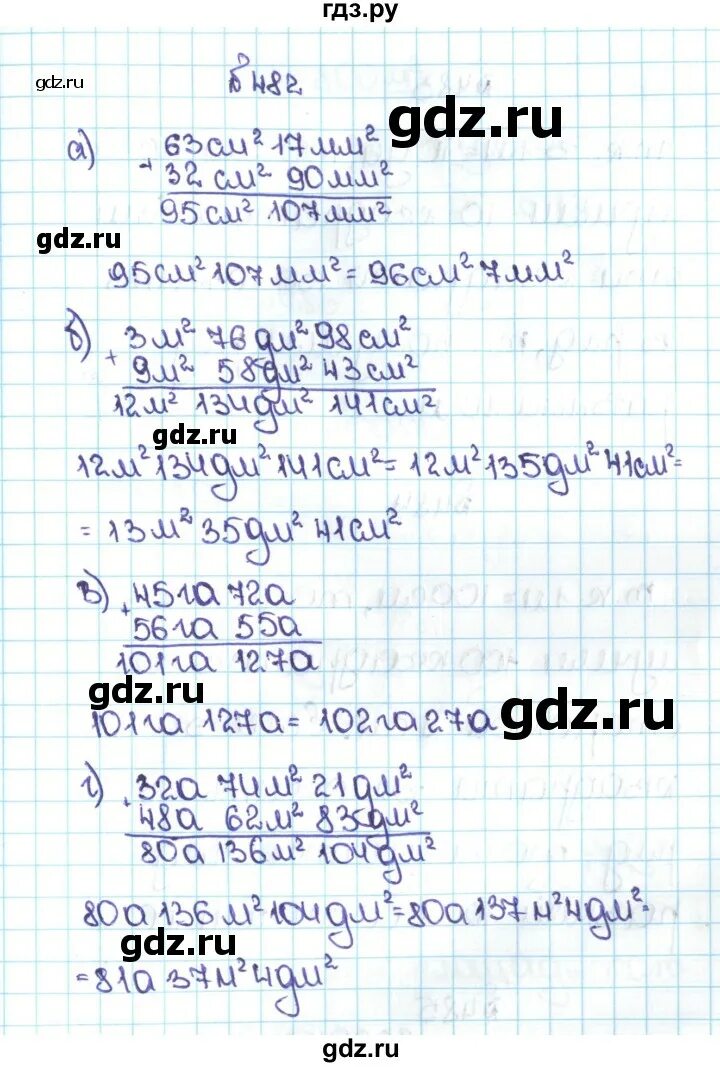 гдз.ру
gdz.ru
№482
gdz.ru
а) + 63см² 17мм²
32 см² 90мм²
95см² 107мм²
gdz.ru
95см² 107мм² = 96см² 7мм²
б) + 3м² 76дм² 98см²
9м² 58дм² 43см²
12м² 134дм² 141см²
gdz.ru
12м² 134дм² 141см² = 12м² 135дм² 41см² =
= 13м² 35дм² 41см²
в) + 45га 72а
56га 55а
101га 127а
gdz.ru
101га 127а = 102га 27а
gdz.ru
г) + 32а 74м² 21дм²
48а 62м² 83дм²
80а 136м² 104дм²
80а 136м² 104дм² = 80а 137м² 4дм² =
gdz.ru
= 81а 37м² 4дм²
gdz.ru